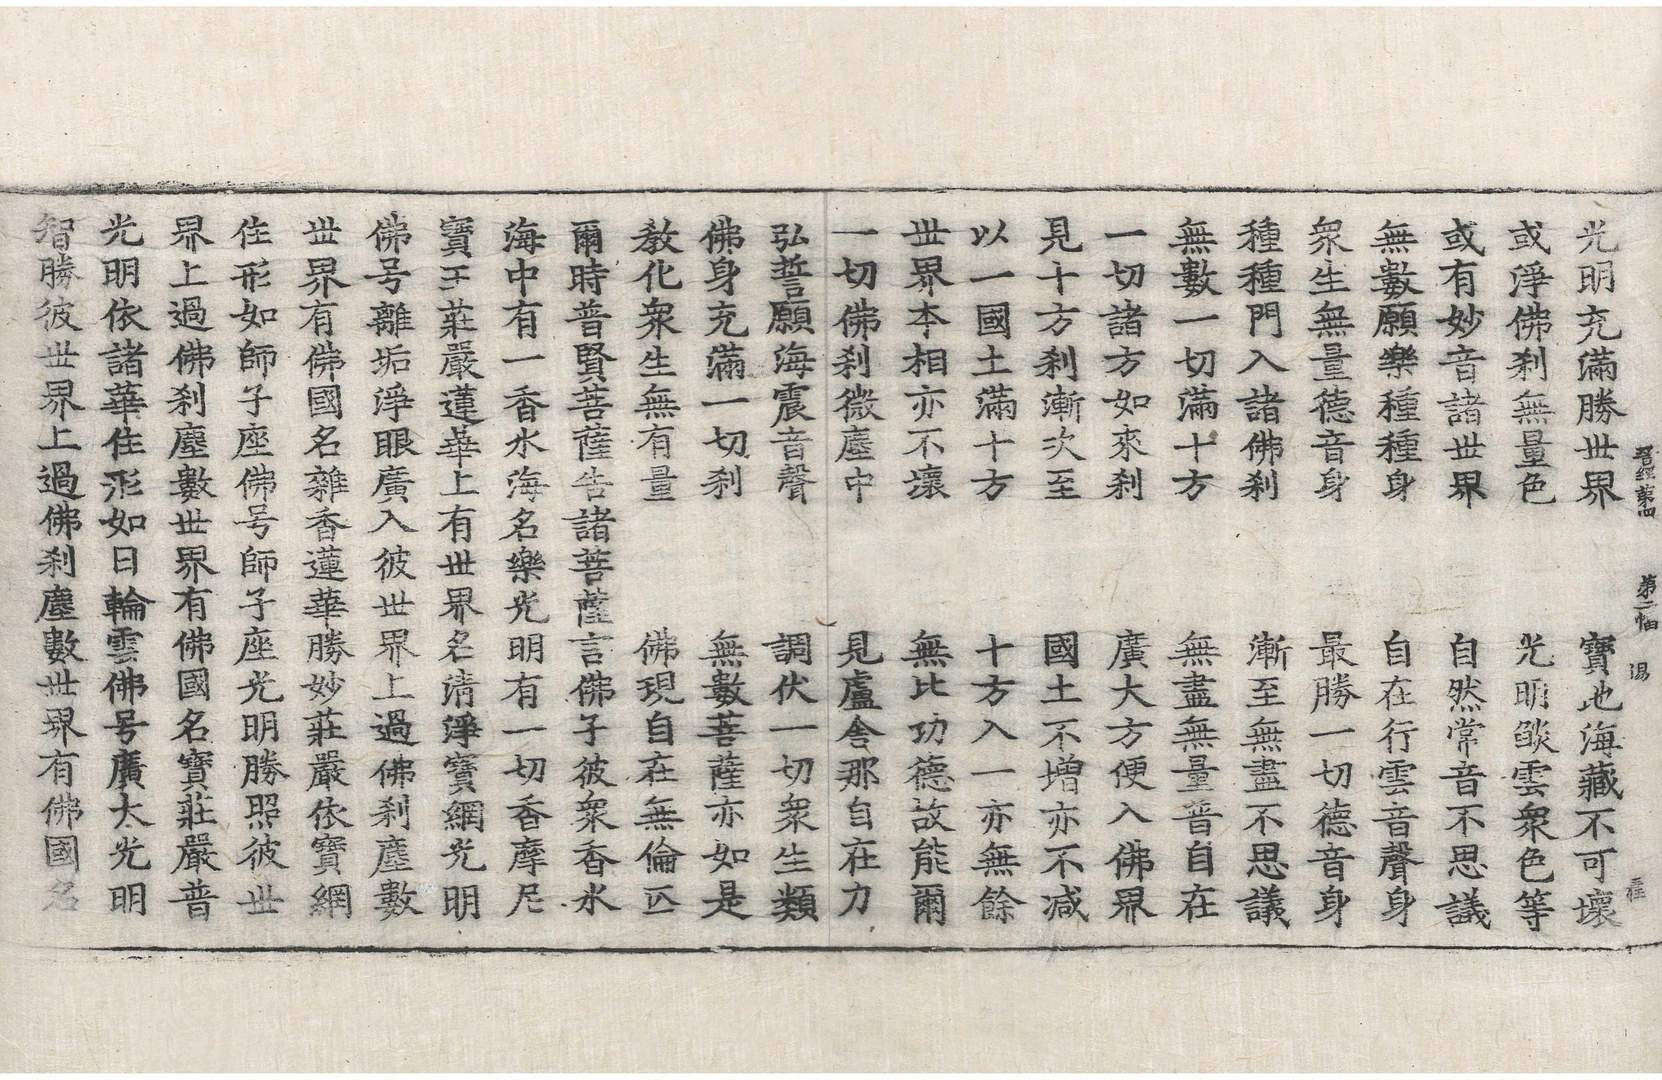 晉經第四　第二幅　湯　王桂
光明充滿勝世界　寶地海藏不可壞
或淨佛刹無量色　光明燄雲衆色等
或有妙音諸世界　自然常音不思議
無數願樂種種身　自在行雲音聲身
衆生無量德音身　最勝一切德音身
種種門入諸佛刹　漸至無盡不思議
無數一切滿十方　無盡無量普自在
一切諸方如來刹　廣大方便入佛界
見十方刹漸次至　國土不增亦不減
以一國土滿十方　十方入一亦無餘
世界本相亦不壞　無比功德故能爾
一切佛刹微塵中　見盧舍那自在力
弘誓願海震音聲　調伏一切衆生類
佛身充滿一切刹　無數菩薩亦如是
敎化衆生無有量　佛現自在無倫匹
爾時普賢菩薩告諸菩薩言佛子彼衆香水
海中有一香水海名樂光明有一切香摩尼
寶王莊嚴蓮華上有世界名清淨寶網光明
佛号離垢淨眼廣入彼世界上過佛刹塵數
世界有佛國名雜香蓮華勝妙莊嚴依寶網
住形如師子座佛号師子座光明勝照彼世
界上過佛刹塵數世界有佛國名寶莊嚴普
光明依諸華住形如日輪雲佛号廣大光明
智勝彼世界上過佛刹塵數世界有佛國名